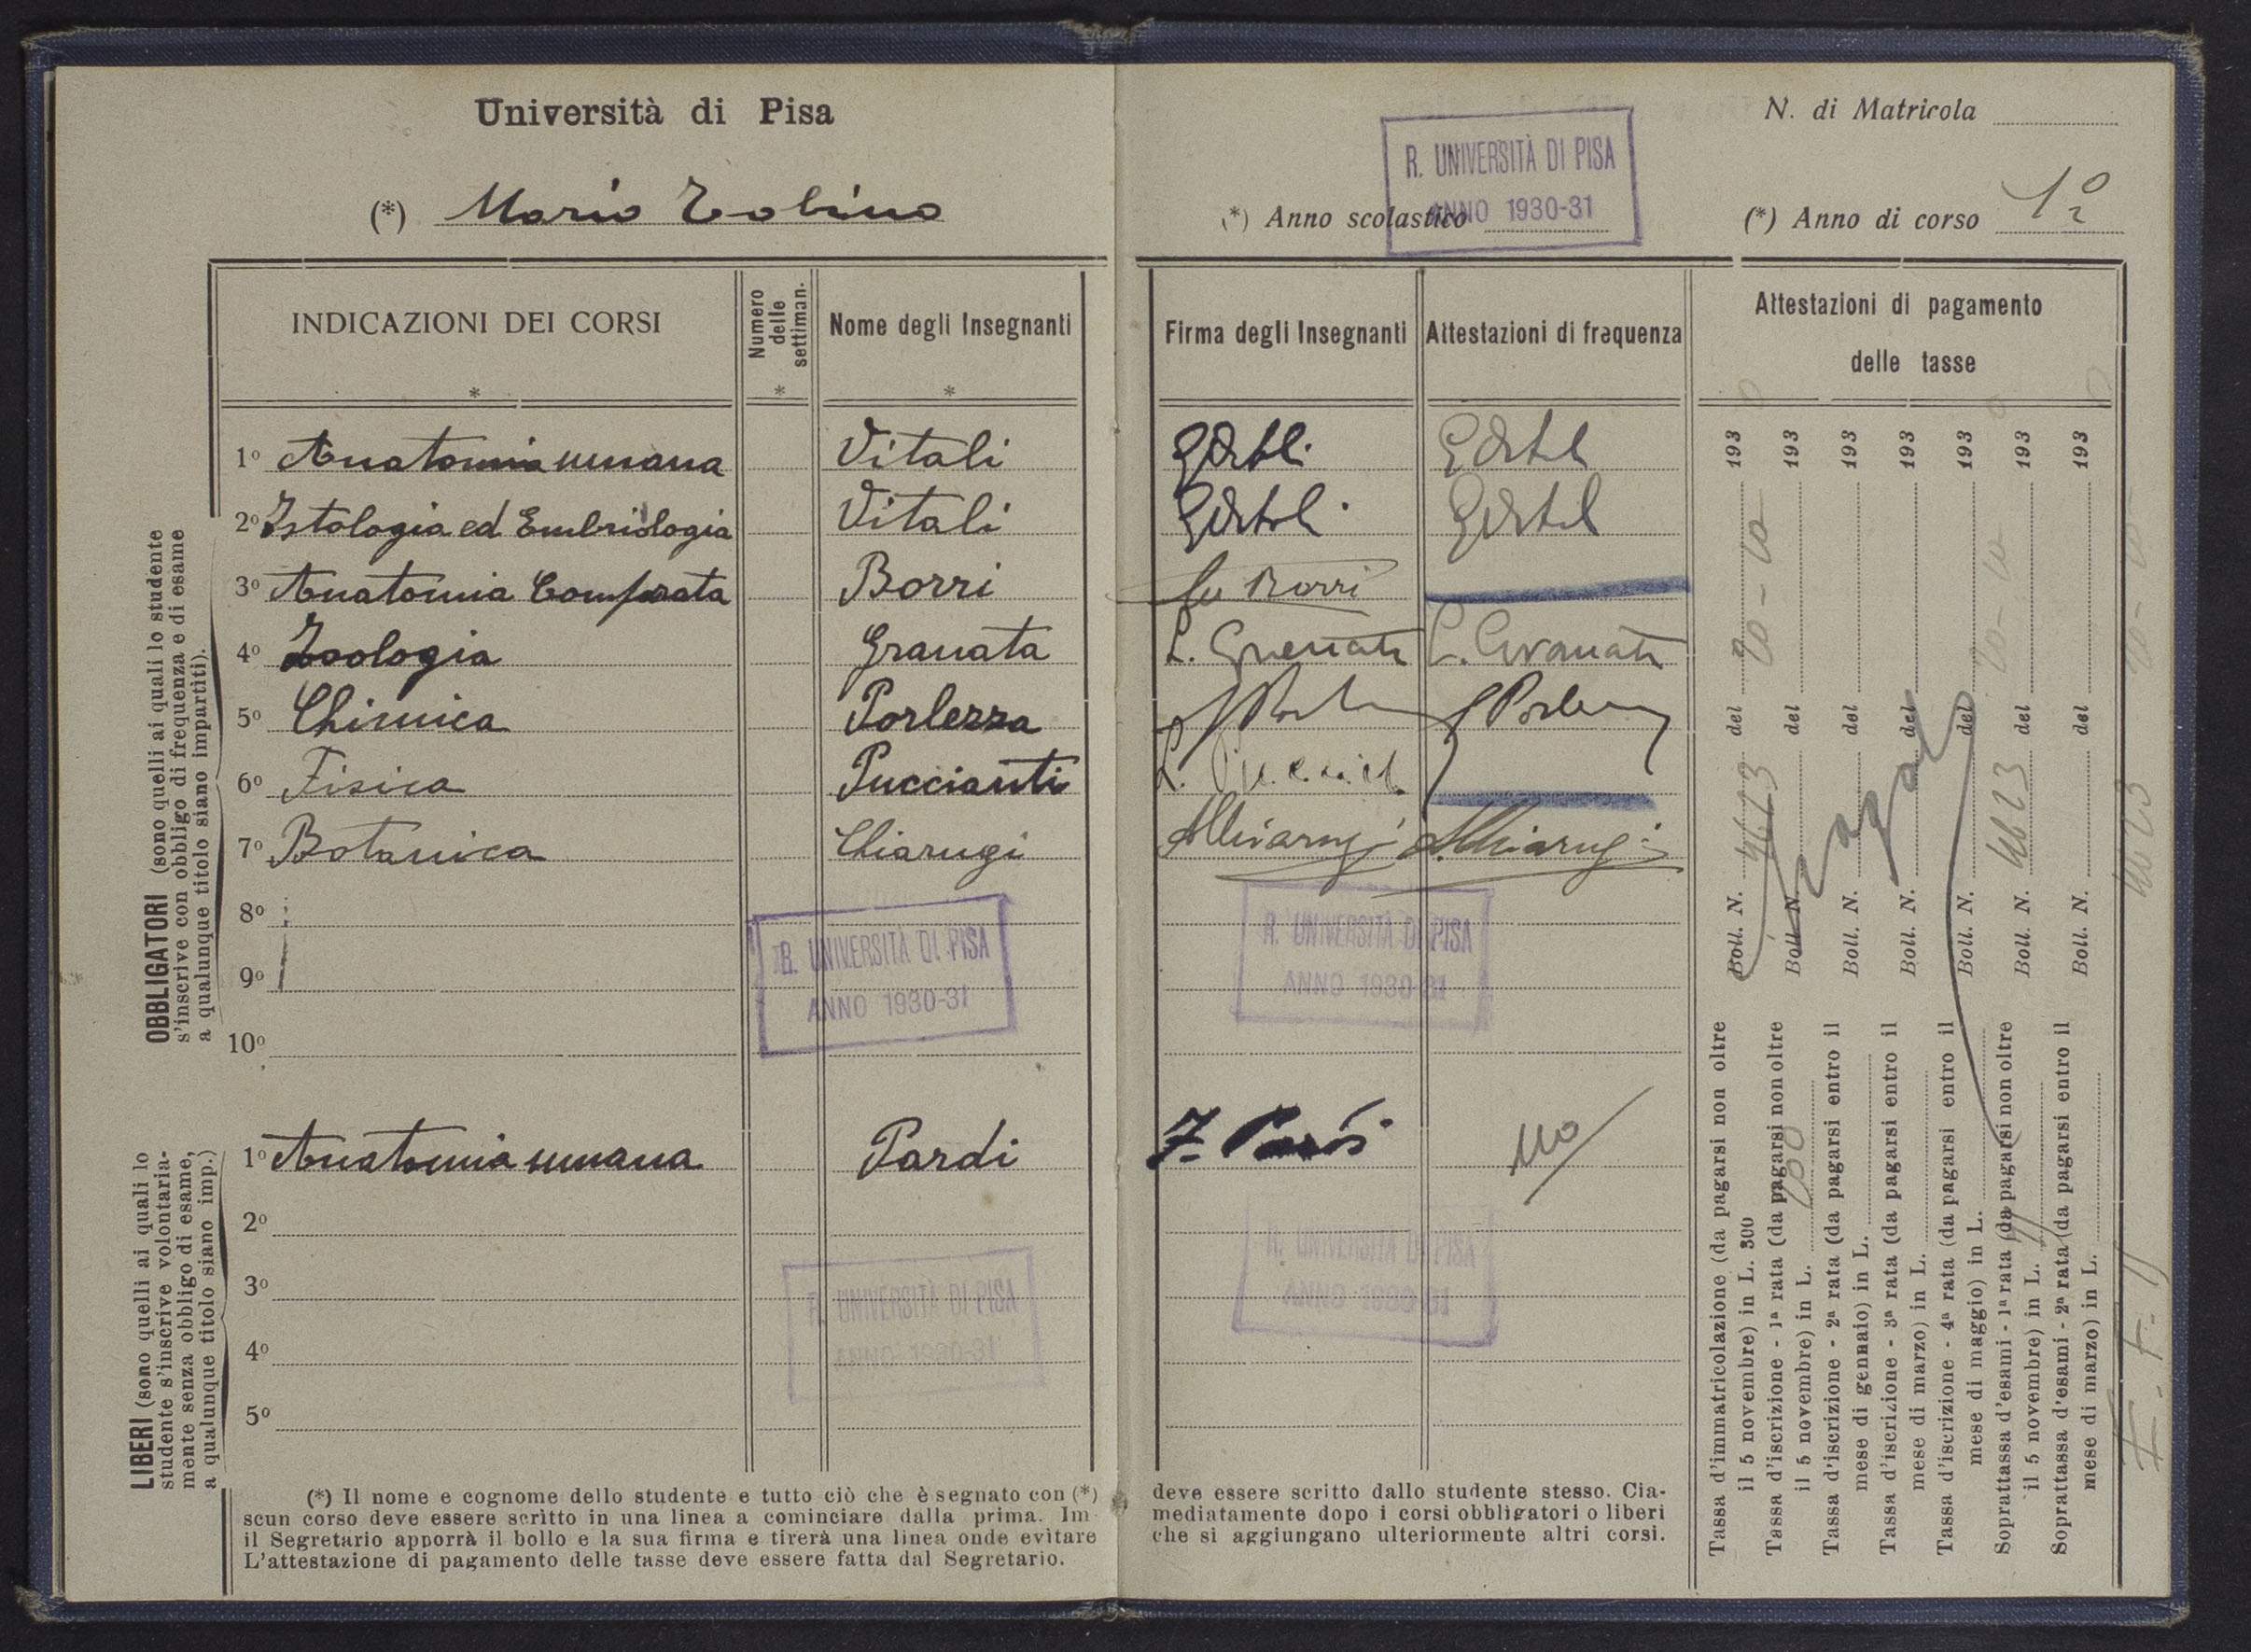 Università di Pisa
(*) Mario Tobino
INDICAZIONI DEI CORSI
*
Numero delle settiman.
*
Nome degli Insegnanti
*
OBBLIGATORI (sono quelli ai quali lo studente
s'inscrive con obbligo di frequenza e di esame
a qualunque titolo siano impartiti).
1º Anatomia umana Vitali
2º Istologia ed Embriologia Vitali
3º Anatomia Comparata Borri
4º Zoologia Granata
5º Chimica Porlezza
6º Fisica Puccianti
7º Botanica Chiarugi
8º
9º
10º
R. UNIVERSITÀ DI PISA
ANNO 1930-31
LIBERI (sono quelli ai quali lo
studente s'inscrive volontaria-
mente senza obbligo di esame,
a qualunque titolo siano imp.)
1º Anatomia umana Pardi
2º
3º
4º
5º
R. UNIVERSITÀ DI PISA
ANNO 1930-31
(*) Il nome e cognome dello studente e tutto ciò che è segnato con (*)
scun corso deve essere scritto in una linea a cominciare dalla prima. Im
il Segretario apporrà il bollo e la sua firma e tirerà una linea onde evitare
L'attestazione di pagamento delle tasse deve essere fatta dal Segretario.
N. di Matricola
R. UNIVERSITÀ DI PISA
ANNO 1930-31
(*) Anno scolastico
(*) Anno di corso 1º
Firma degli Insegnanti
Attestazioni di frequenza
Attestazioni di pagamento
delle tasse
Borri
L. Granata L. Granata
Chiarugi Chiarugi
R. UNIVERSITÀ DI PISA
ANNO 1930-31
Pardi
no
R. UNIVERSITÀ DI PISA
ANNO 1930-31
deve essere scritto dallo studente stesso. Cia-
mediatamente dopo i corsi obbligatori o liberi
che si aggiungano ulteriormente altri corsi.
Tassa d'immatricolazione (da pagarsi non oltre
il 5 novembre) in L. 300 Boll. N. del 193
Tassa d'iscrizione - 1ª rata (da pagarsi non oltre
il 5 novembre) in L. Boll. N. del 193
Tassa d'iscrizione - 2ª rata (da pagarsi entro il
mese di gennaio) in L. Boll. N. del 193
Tassa d'iscrizione - 3ª rata (da pagarsi entro il
mese di marzo) in L. Boll. N. del 193
Tassa d'iscrizione - 4ª rata (da pagarsi entro il
mese di maggio) in L. Boll. N. del 193
Soprattassa d'esami - 1ª rata (da pagarsi non oltre
il 5 novembre) in L. Boll. N. del 193
Soprattassa d'esami - 2ª rata (da pagarsi entro il
mese di marzo) in L. Boll. N. del 193